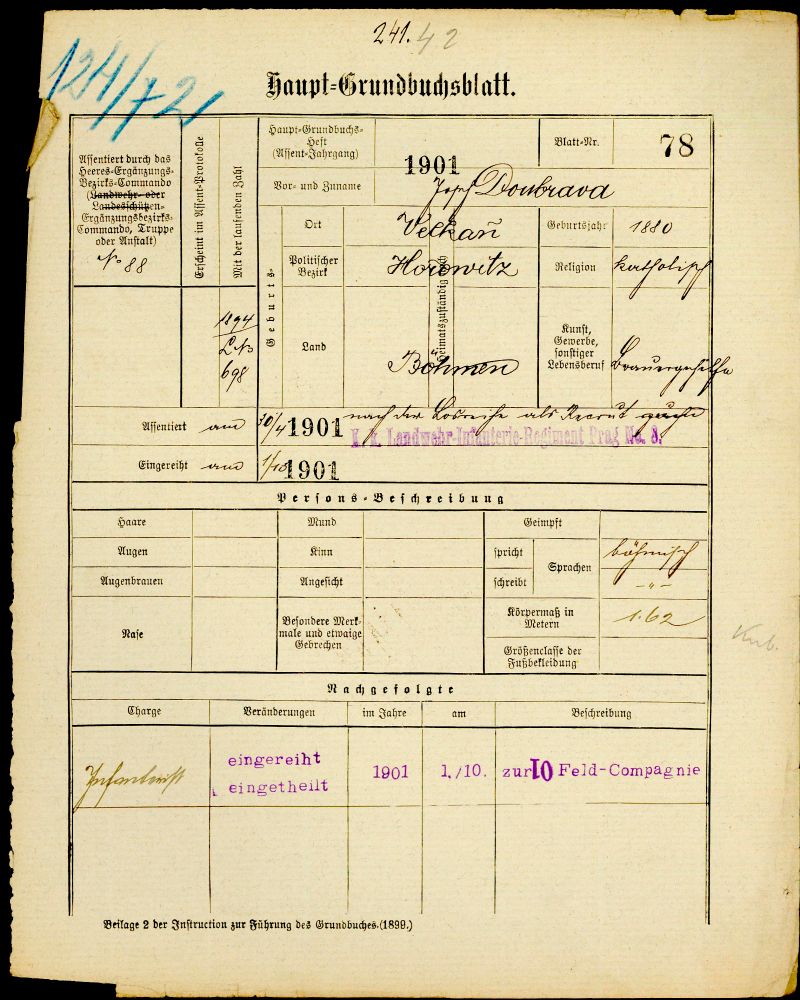 241. 42
124/721
Haupt-Grundbuchsblatt.
Assentiert durch das
Heeres-Ergänzungs-
Bezirks-Commando
(Landwehr- oder
Landesschützen-
Ergänzungsbezirks-
Commando, Truppe
oder Anstalt)
No 88
Erscheint im Assent-Protokolle
Mit der laufenden Zahl
1894
698
Haupt-Grundbuchs-
Heft
(Assent-Jahrgang)
1901
Blatt-Nr.
78
Vor- und Zuname
Josef Doubrava
Geburts-
Ort
Heimatszuständig nach
Geburtsjahr
1880
Politischer
Bezirk
Hořowitz
Religion
katholisch
Land
Böhmen
Kunst,
Gewerbe,
sonstiger
Lebensberuf
Brauergehilfe
Assentiert am 30/4 1901 nach der Losreihe als Recrut
K. k. Landwehr-Infanterie-Regiment Prag No. 8.
Eingereiht am 1/10 1901
Persons-Beschreibung
Haare
Mund
Geimpft
Augen
Kinn
spricht
Sprachen
böhmisch
Augenbrauen
Angesicht
schreibt
-"-
Nase
Besondere Merk-
male und etwaige
Gebrechen
Körpermaß in
Metern
1.62
Größenclasse der
Fußbekleidung
Nachgefolgte
Charge Veränderungen im Jahre am Beschreibung
Infanterist
eingereiht
eingetheilt
1901 1./10. zur 10 Feld-Compagnie
Beilage 2 der Instruction zur Führung des Grundbuches.(1899.)